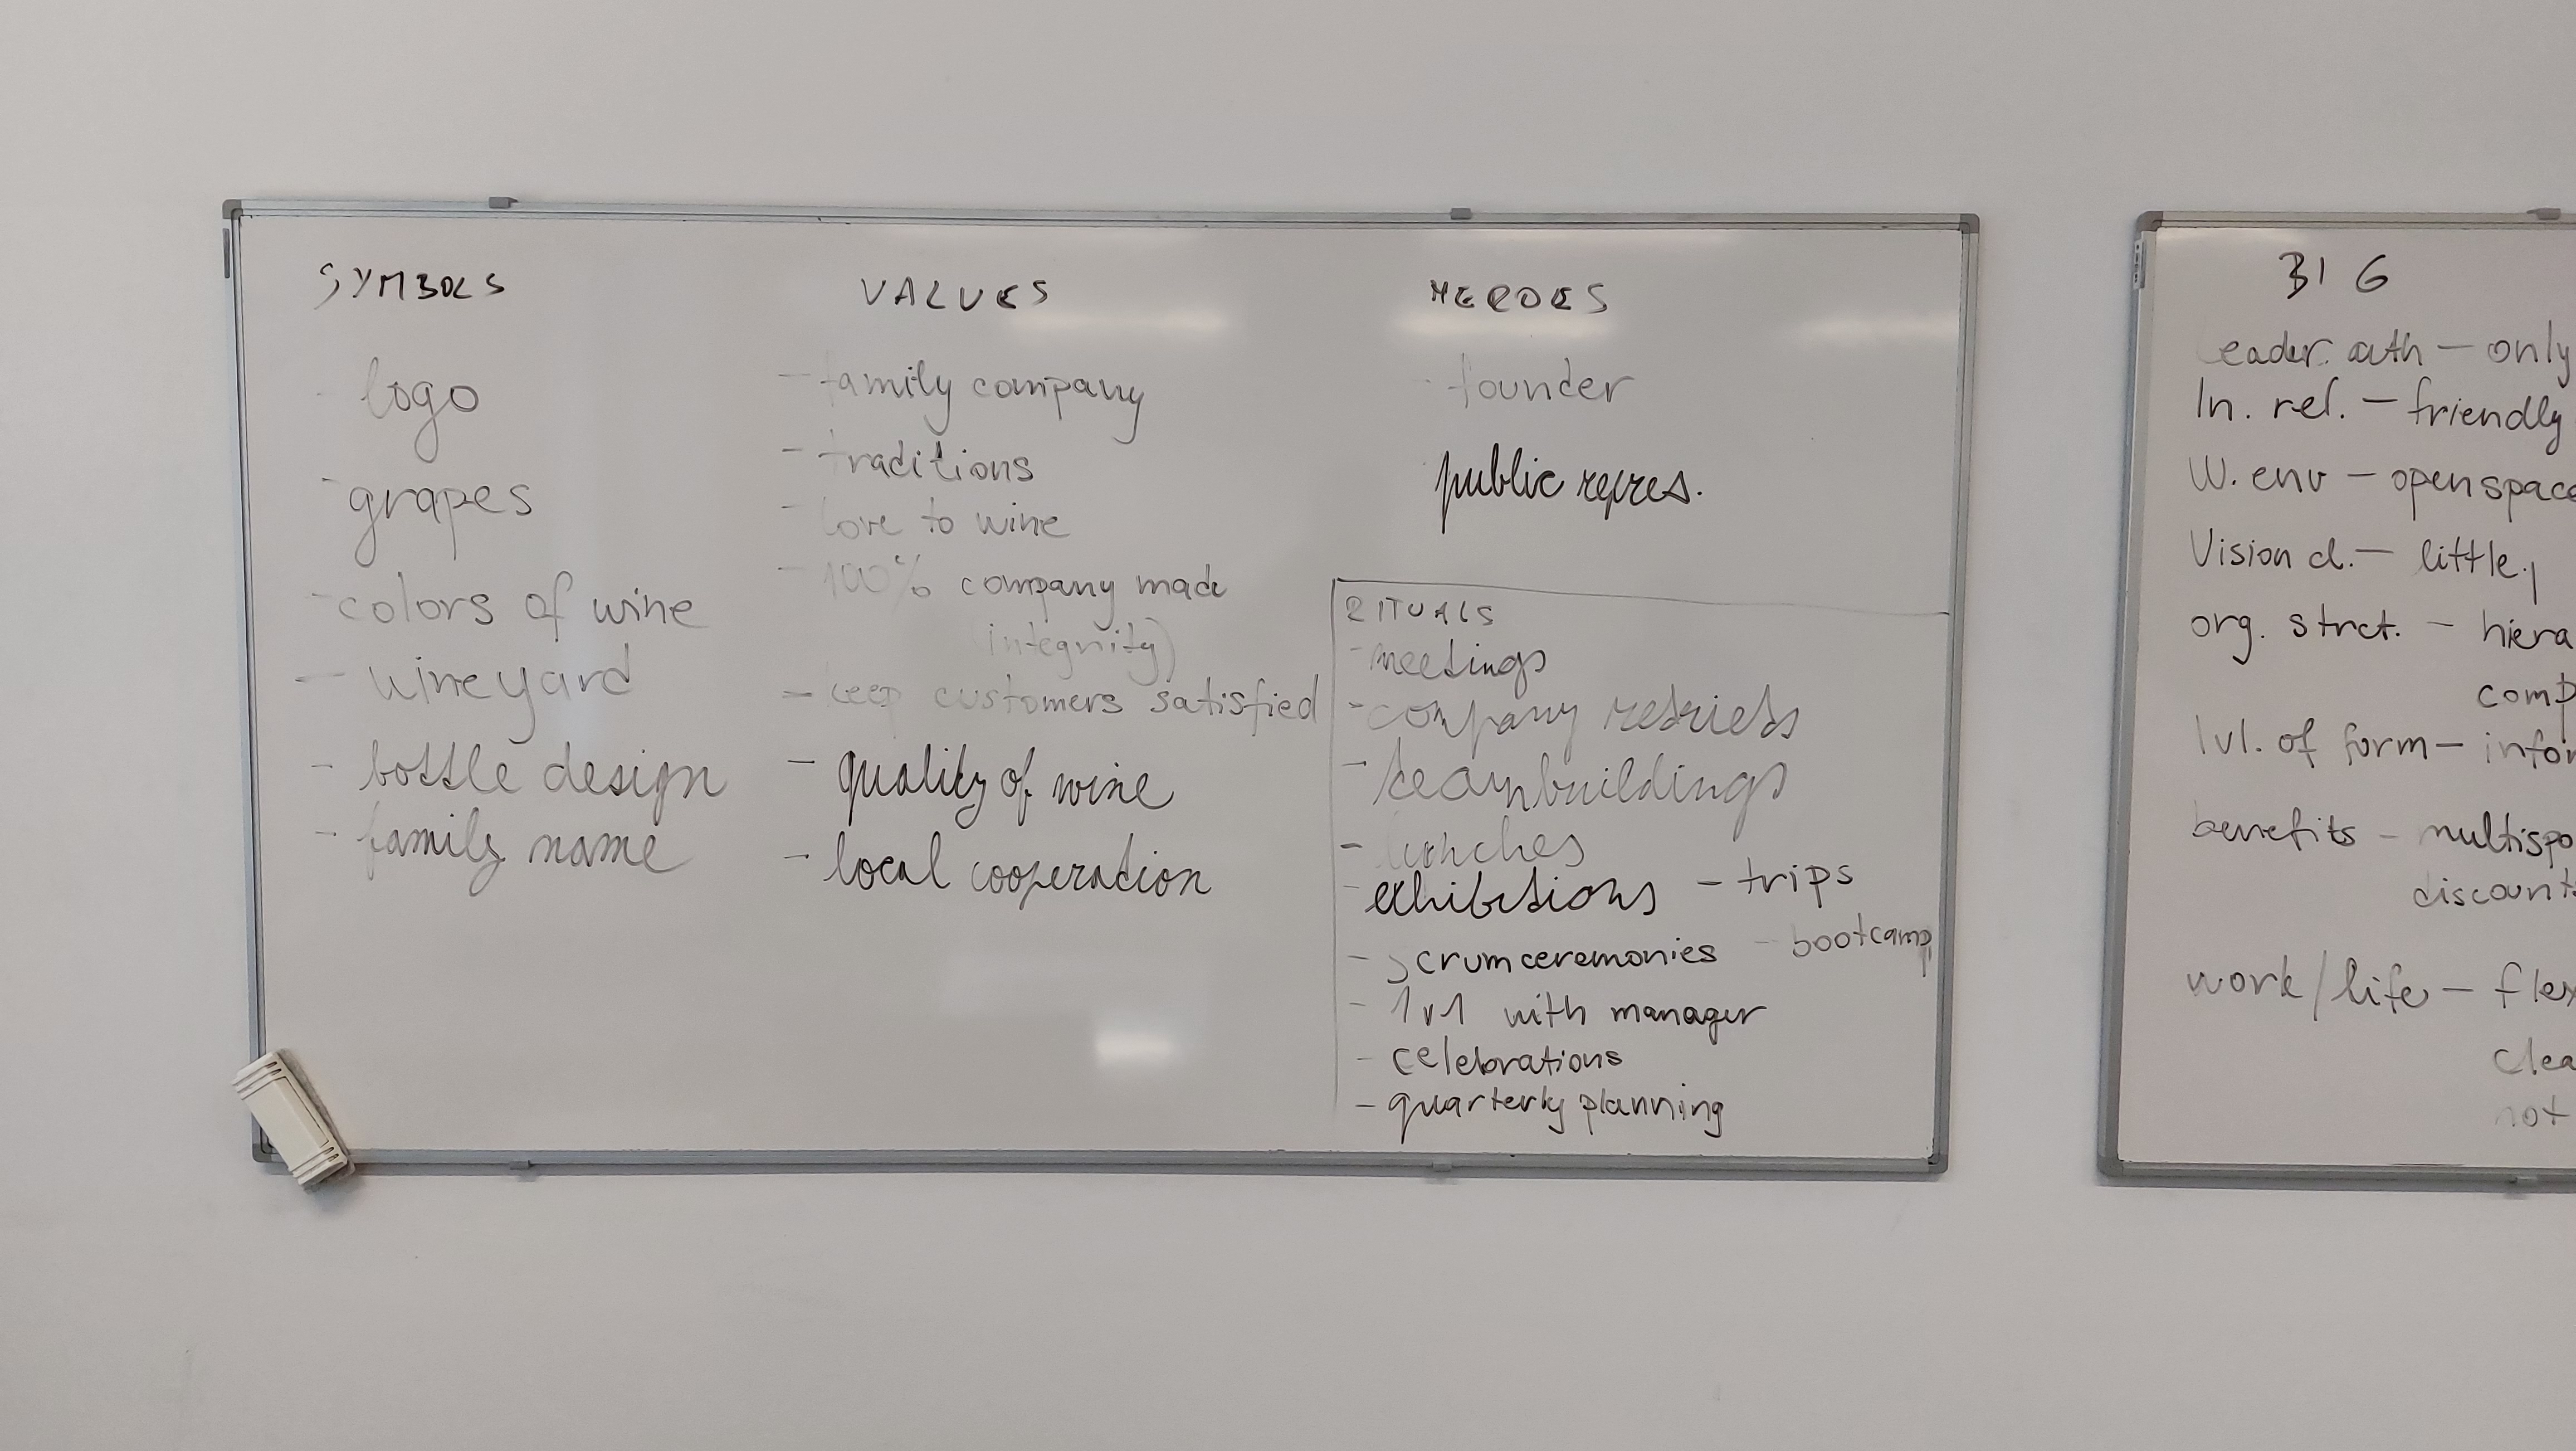 SYMBOLS
- logo
- grapes
- colors of wine
- wineyard
- bottle design
- family name
VALUES
- family company
- traditions
- love to wine
- 100% company made
(integrity)
- keep customers satisfied
- quality of wine
- local cooperation
HEROES
- founder
public repres.
RITUALS
- meetings
- company retriets
- teambuildings
- lunches
- exhibitions - trips
- scrum ceremonies - bootcamp
- 1v1 with manager
- celebrations
- quarterly planning
BIG
Leader. auth - only
In. rel. - friendly
W. env - openspace
Vision cl. - little,
org. strct. - hiera
comp
lvl. of form - infor
benefits - multispo
discounts
work/life - flex
clea
not